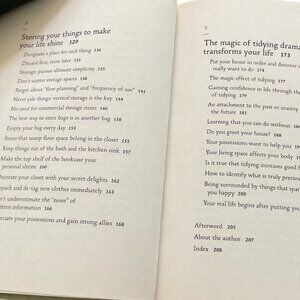 4
Storing your things to make
your life shine 129
Designate a place for each thing 130
Discard first, store later 133
Storage: pursue ultimate simplicity 135
Don't scatter storage spaces 138
Forget about "flow planning" and "frequency of use" 141
Never pile things: vertical storage is the key 144
No need for commercial storage items 146
The best way to store bags is in another bag 150
Empty your bag every day 153
Items that usurp floor space belong in the closet 155
Keep things out of the bath and the kitchen sink 157
Make the top shelf of the bookcase your
personal shrine 160
Decorate your closet with your secret delights 162
pack and de-tag new clothes immediately 163
n't underestimate the "noise" of
itten information 166
eciate your possessions and gain strong allies 168
5
The magic of tidying drama
transforms your life 173
Put your house in order and discover w
really want to do 174
The magic effect of tidying 177
Gaining confidence in life through the
of tidying 179
An attachment to the past or anxiety
the future 181
Learning that you can do without 18
Do you greet your house? 188
Your possessions want to help you 190
Your living space affects your body
Is it true that tidying increases good f
How to identify what is truly precious
Being surrounded by things that spar
you happy 200
Your real life begins after putting you
Afterword 205
About the author 207
Index 208